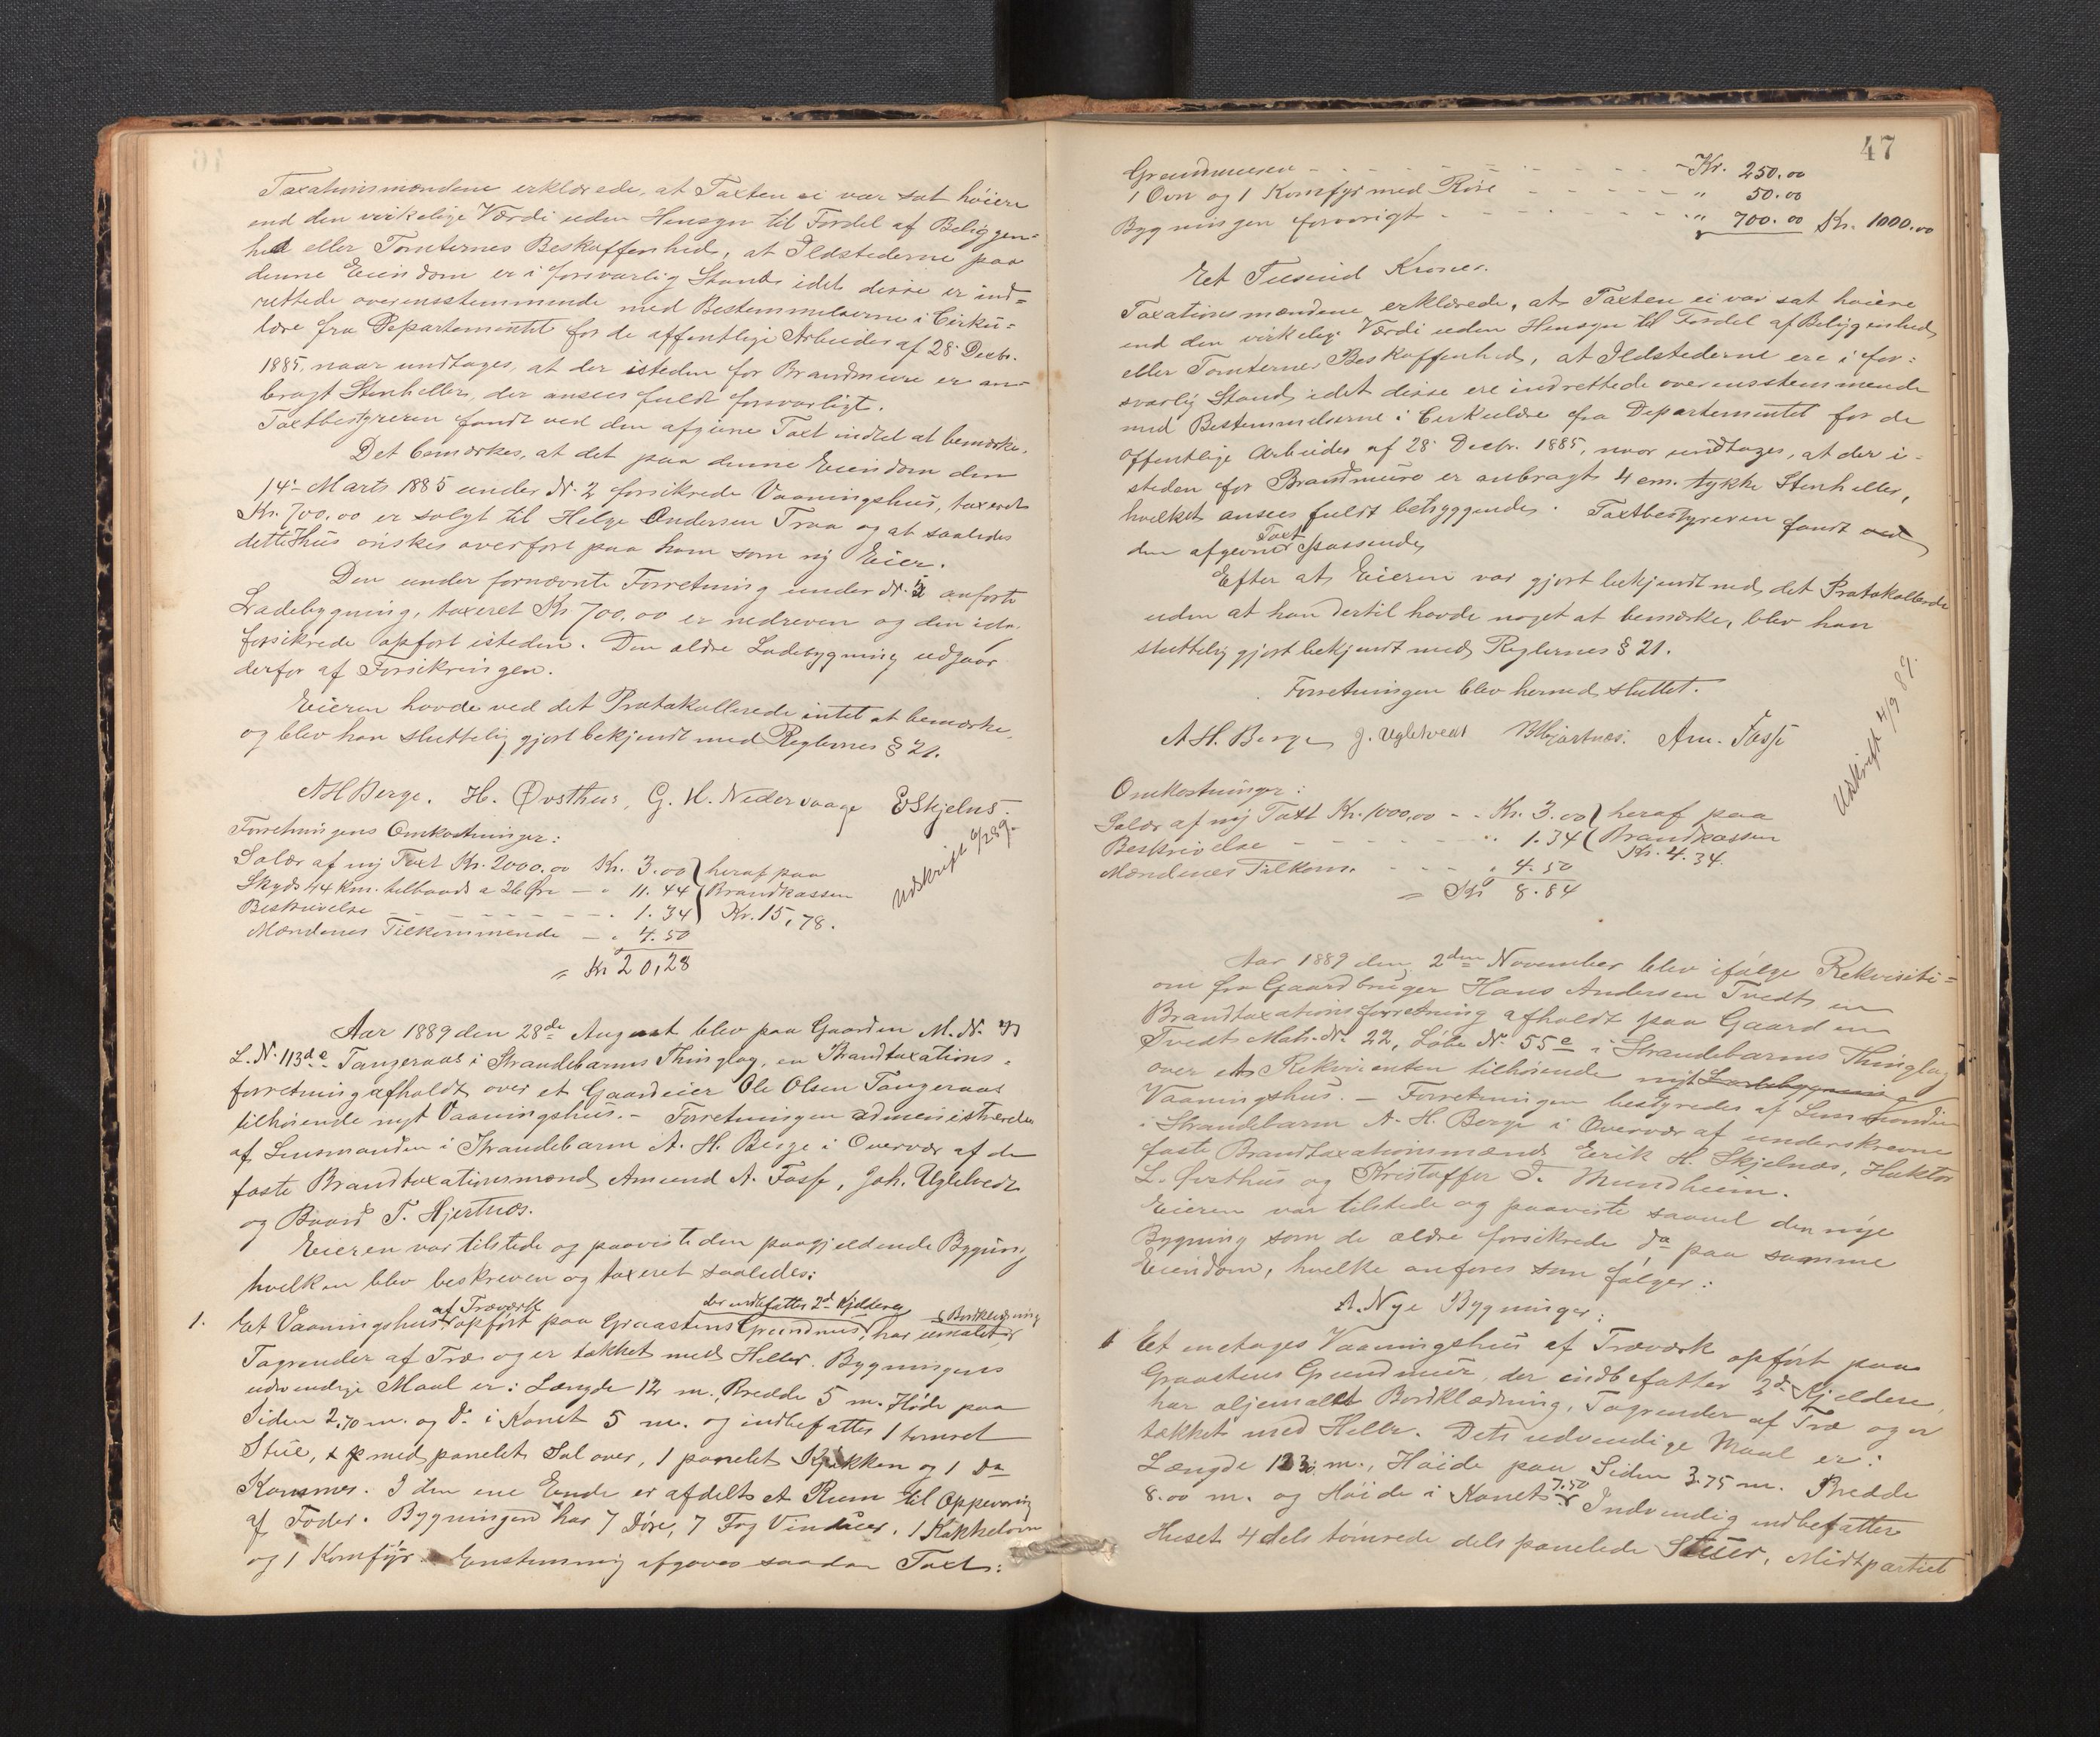 Taxationsmændene erklærede, at Taxten ei var sat høiere
end den virkelige Værdi uden Hensyn til Fordel af Beliggen=
hed eller Tomternes Beskaffenhed, at Ildstederne paa
denne Eiendom er i forsvarlig Stand idet disse er ind=
rettede overensstemmende med Bestemmelserne i Cirku=
lære fra Departementet for de offentlige Arbeider af 28 Decbr.
1885, naar undtages, at der isteden for Brandmure er an=
bragt Stenheller, der ansees fuldt forsvarligt.
Taxtbestyreren fandt ved den afgivne Taxt indtet at bemærke.
Det bemærkes, at det paa denne Eiendom den
14. Marts 1885 under No. 2 forsikrede Vaaningshus, taxeret
Kr. 700,00 er solgt til Helge Andersen Traa og at saaledes
dette Hus ønskes overført paa ham som ny Eier.
Den under fornævnte Forretning under No. 3 anførte
Ladebygning, taxeret Kr 700,00 er nedreven og den idag
forsikrede opført isteden. Den ældre Ladebygning udgaar
derfor af Forsikringen.
Eieren havde ved det Protokollerede intet at bemærke,
og blev han sluttelig gjort bekjendt med Reglernes § 21.
AHBerge. H. Øvsthus, G. H. Nedervaage EHSkjelnes.
Forretningens Omkostninger:
Salær af ny Taxt Kr. 2000.00 Kr. 3.00 ) heraf paa
Skyds 44 km. tilbaads a 26 Øre — " 11.44 ( Brandkassen
Beskrivelse - - - - - - - " 1.34 ) Kr. 15,78.
Mændenes Tilkommende — " 4.50
= Kr 20,28
Udskrift 6/2 89.
Aar 1889 den 28de August blev paa Gaarden M. No. 43
L. No. 113de Tangeraas i Strandebarms Thinglag, en Brandtaxations=
forretning afholdt over et Gaardeier Ole Olsen Tangeraas
tilhørende nyt Vaaningshus. - Forretningen administreredes
af Lensmanden i Strandebarm A. H. Berge i Overvær af de
faste Brandtaxationsmænd Amund A. Fosse, Joh. Uglelvedt
og Baard T. Hjertnæs.
Eieren var tilstede og paaviste den paagjeldende Bygning
hvilken blev beskreven og taxeret saaledes:
1. Et Vaaningshus af Træværk opført paa Graastens Grundmur, der indbefatter 2de Kjeldere, har umalet Bordklædning,
Tagrender af Træ og er takket med Heller. Bygningens
udvendige Maal er: Længde 12 m. Bredde 5 m. Høide paa
Siden 2.70 m. og do. i Rønet 5 m. og indbefatter 1 tømret
Stue, med panelet Sal over, 1 panelet Kjøkken og 1 Do
Kammer. I den ene Ende er afdelt et Rum til Oppevaring
af Foder. Bygningen har 7 Døre, 7 Fag Vinduer, 1 Kakkelovn
og 1 Komfyr. Enstemmig afgaves saadan Taxt:
47
Grundmuren - - - - - - - - - Kr. 250.00
1 Ovn og 1 Komfyr med Røre - - - - - " 50.00
Bygningen forøvrigt - - - - - - - " 700.00 Kr. 1000.00
Et Tusind Kroner.
Taxationsmændene erklærede, at Taxten ei var sat høiere
end den virkelige Værdi uden Hensyn til Fordel af Beliggenhed
eller Tomternes Beskaffenhed, at Ildstederne ere i for=
svarlig Stand, idet disse ere indrettede overensstemmende
med Bestemmelserne i Cirkulære fra Departementet for de
offentlige Arbeider af 28 Decbr. 1885, naar undtages, at der i=
steden for Brandmure er anbragt 4 cm. tykke Stenheller,
hvilket ansees fuldt betryggende. Taxtbestyreren fandt ved
den afgivne Taxt passende.
Efter at Eieren var gjort bekjendt med det Protokollerede
uden at han dertil havde noget at bemærke, blev han
sluttelig gjort bekjendt med Reglernes § 21.
Forretningen blev hermed sluttet.
AH. Berge J. Uglelvedt BHjartnæs. Am. Fosse
Udskrift 4/9 89.
Omkostninger:
Salær af ny Taxt Kr. 1000,00 - - Kr. 3.00 ) heraf paa
Beskrivelse - - - - - - - " 1.34 ( Brandkassen
Kr. 4.34.
Mændenes Tilkom. - - - - " 4.50
= Kr 8.84
Aar 1889 den 2den November blev ifølge Rekvisiti=
on fra Gaardbruger Hans Andersen Tvedt en
Brandtaxationsforretning afholdt paa Gaarden
Tvedt Mat. No. 22, Løbe No. 55e i Strandebarms Thinglag
over et Rekvirenten tilhørende nyt Ladebygning
Vaaningshus. - Forretningen bestyredes af Lensmanden
i Strandebarm A. H. Berge i Overvær af underskrevne
faste Brandtaxationsmænd Erik H. Skjelnæs, Haktor
L. Øvsthus og Kristoffer T. Mundheim.
Eieren var tilstede og paaviste saavel den nye
Bygning som de ældre forsikrede do paa samme
Eiendom, hvilke anføres som følger:
A. Nye Bygninger:
1 Et enetages Vaaningshus af Træværk opført paa
Graastens Grundmur, der indbefatter 2de Kjeldere,
har oljemalt Bordklædning, Tagrender af Træ og er
takket med Heller. Dets udvendige Maal er:
Længde m., Høide paa Siden 3.75 m. Bredde
8.00 m. og Høide i Rønet 7.50 Indvendig indbefatter
Huset 4 dels tømrede dels panelede Stuer, Midtpartiet